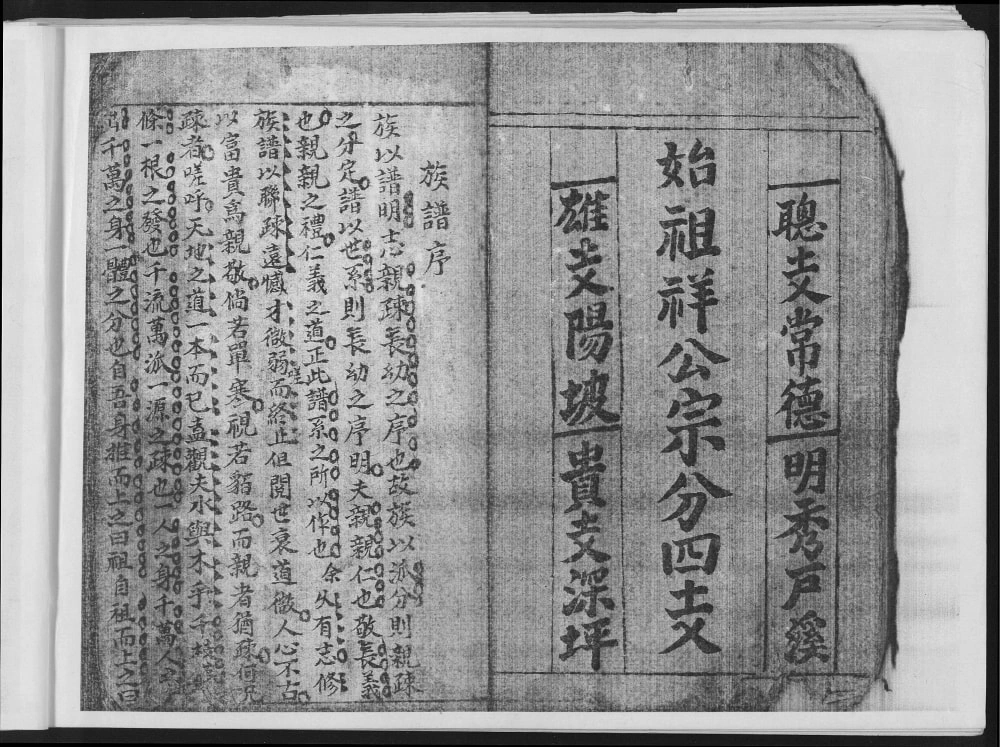 聰支常德明秀戸溪
始祖祥公宗分四支
雄支陽坡貴支深坪
族譜序
族以譜明志親疎長幼之序也故族以派分則親疎
之分定譜以世系則長幼之序明夫親親仁也敬長義
也親親之禮仁義之道正此譜系之所以作也余久有志修
族譜以聯疎遠憾才微弱而終止但閱世衰道微人心不古
以富貴爲親敬倘若單寒視若貊路而親者猶疎何况
疎者嗟呼天地之道一本而已盍觀夫水與木乎千枝萬
條一根之發也千流萬派一源之疎也一人之身千萬人之
千萬之身一體之分也自吾身推而上之曰祖自祖而上之曰